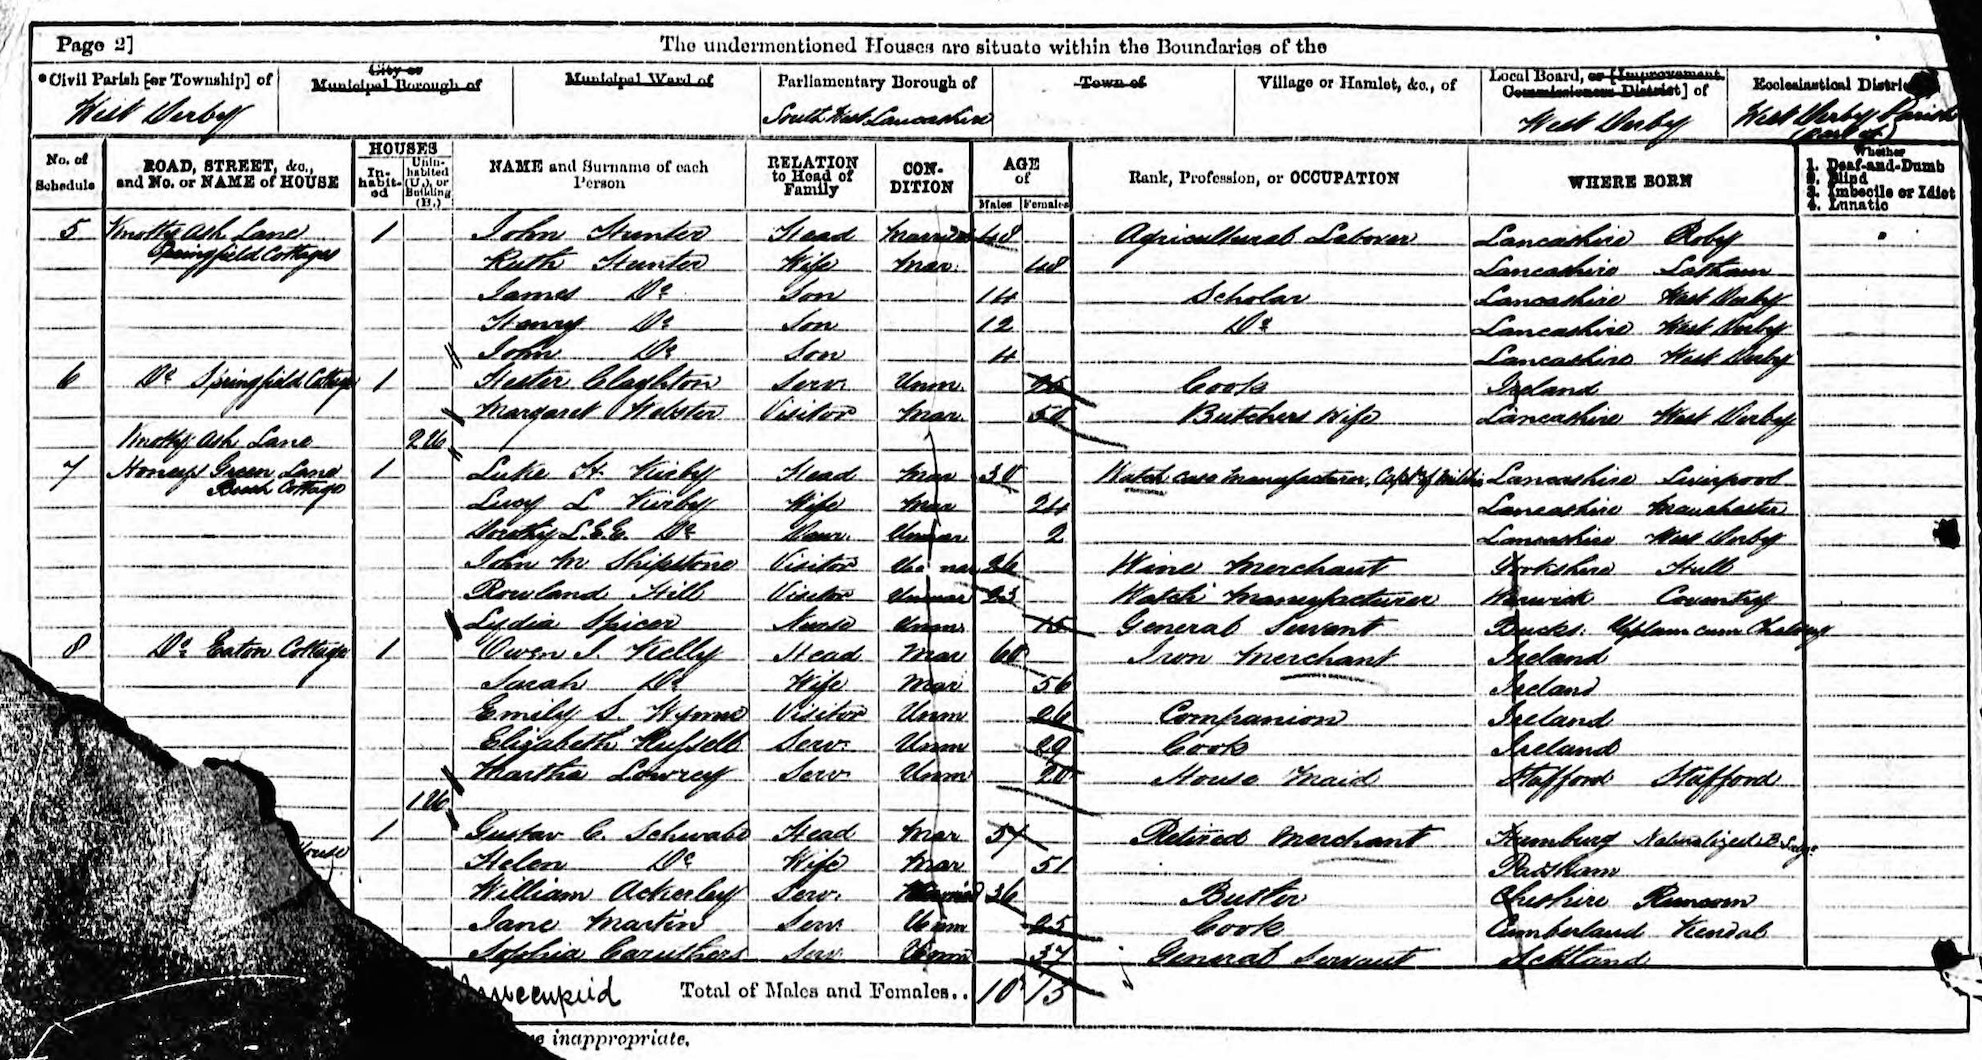 Page 2]
The undermentioned Houses are situate within the Boundaries of the
*Civil Parish [or Township] of
City or Municipal Borough of
Municipal Ward of
Parliamentary Borough of
Town of
Village or Hamlet, &c., of
Local Board, or [Improvement Commissioners District] of
Ecclesiastical District
West Derby
South West Lancashire
West Derby
West Derby Parish (Part of)
No. of Schedule
ROAD, STREET, &c., and No. or NAME of HOUSE
HOUSES
In-habit-ed
Unin-habited (U.), or Building (B.)
NAME and Surname of each Person
RELATION to Head of Family
CON-DITION
AGE of
Males
Females
Rank, Profession, or OCCUPATION
WHERE BORN
Whether
1. Deaf-and-Dumb
2. Blind
3. Imbecile or Idiot
4. Lunatic
5 Knotty Ash Lane Springfield Cottages 1 John Hunter Head Married 48 Agricultural Laborer Lancashire Roby
Ruth Hunter Wife Mar. 48 Lancashire Latham
James Do Son 14 Scholar Lancashire West Derby
Henry Do Son 12 Do Lancashire West Derby
John Do Son 4 Lancashire West Derby
6 Do Springfield Cottage 1 Hester Claghton Serv. Unm. Cook Ireland
Margaret Webster Visitor Mar 50 Butchers Wife Lancashire West Derby
Knotty Ash Lane 2U
7 Honeys Green Lane Beech Cottage 1 Luke H. Kirby Head Mar 30 Watch case Manufacturer, Capt of Militia Lancashire Liverpool
Lucy L Kirby Wife Mar 24 Lancashire Manchester
Dorothy L.E.E. Do Daur. Unmar 2 Lancashire West Derby
John M Shipstone Visitor Unmar 26 Wine Merchant Yorkshire Hull
Rowland Hill Visitor Unmar 23 Watch Manufacturer Warwick Coventry
Lydia Spicer Nurse Unm 15 General Servant Bucks: Upton cum Chalvey
8 Do Eaton Cottage 1 Owen J. Kelly Head Mar 60 Iron Merchant Ireland
Sarah Do Wife Mar 56 Ireland
Emily S. Wynne Visitor Unm 26 Companion Ireland
Elizabeth Russell Serv. Unm 29 Cook Ireland
Martha Lowrey Serv. Unm 20 House Maid Stafford Stafford
1U
1 Gustav C. Schwabe Head Mar 57 Retired Merchant Hamburg Naturalized B. Subj.
House Helen Do Wife Mar 51 Padskam
William Ackerley Serv. Married 36 Butler Cheshire Runcorn
Jane Martin Serv. Unm 25 Cook Cumberland Kendal
Sophia Caruthers Serv. Unm 37 General Servant Scktland
unoccupied
Total of Males and Females.. 10 15
inappropriate.